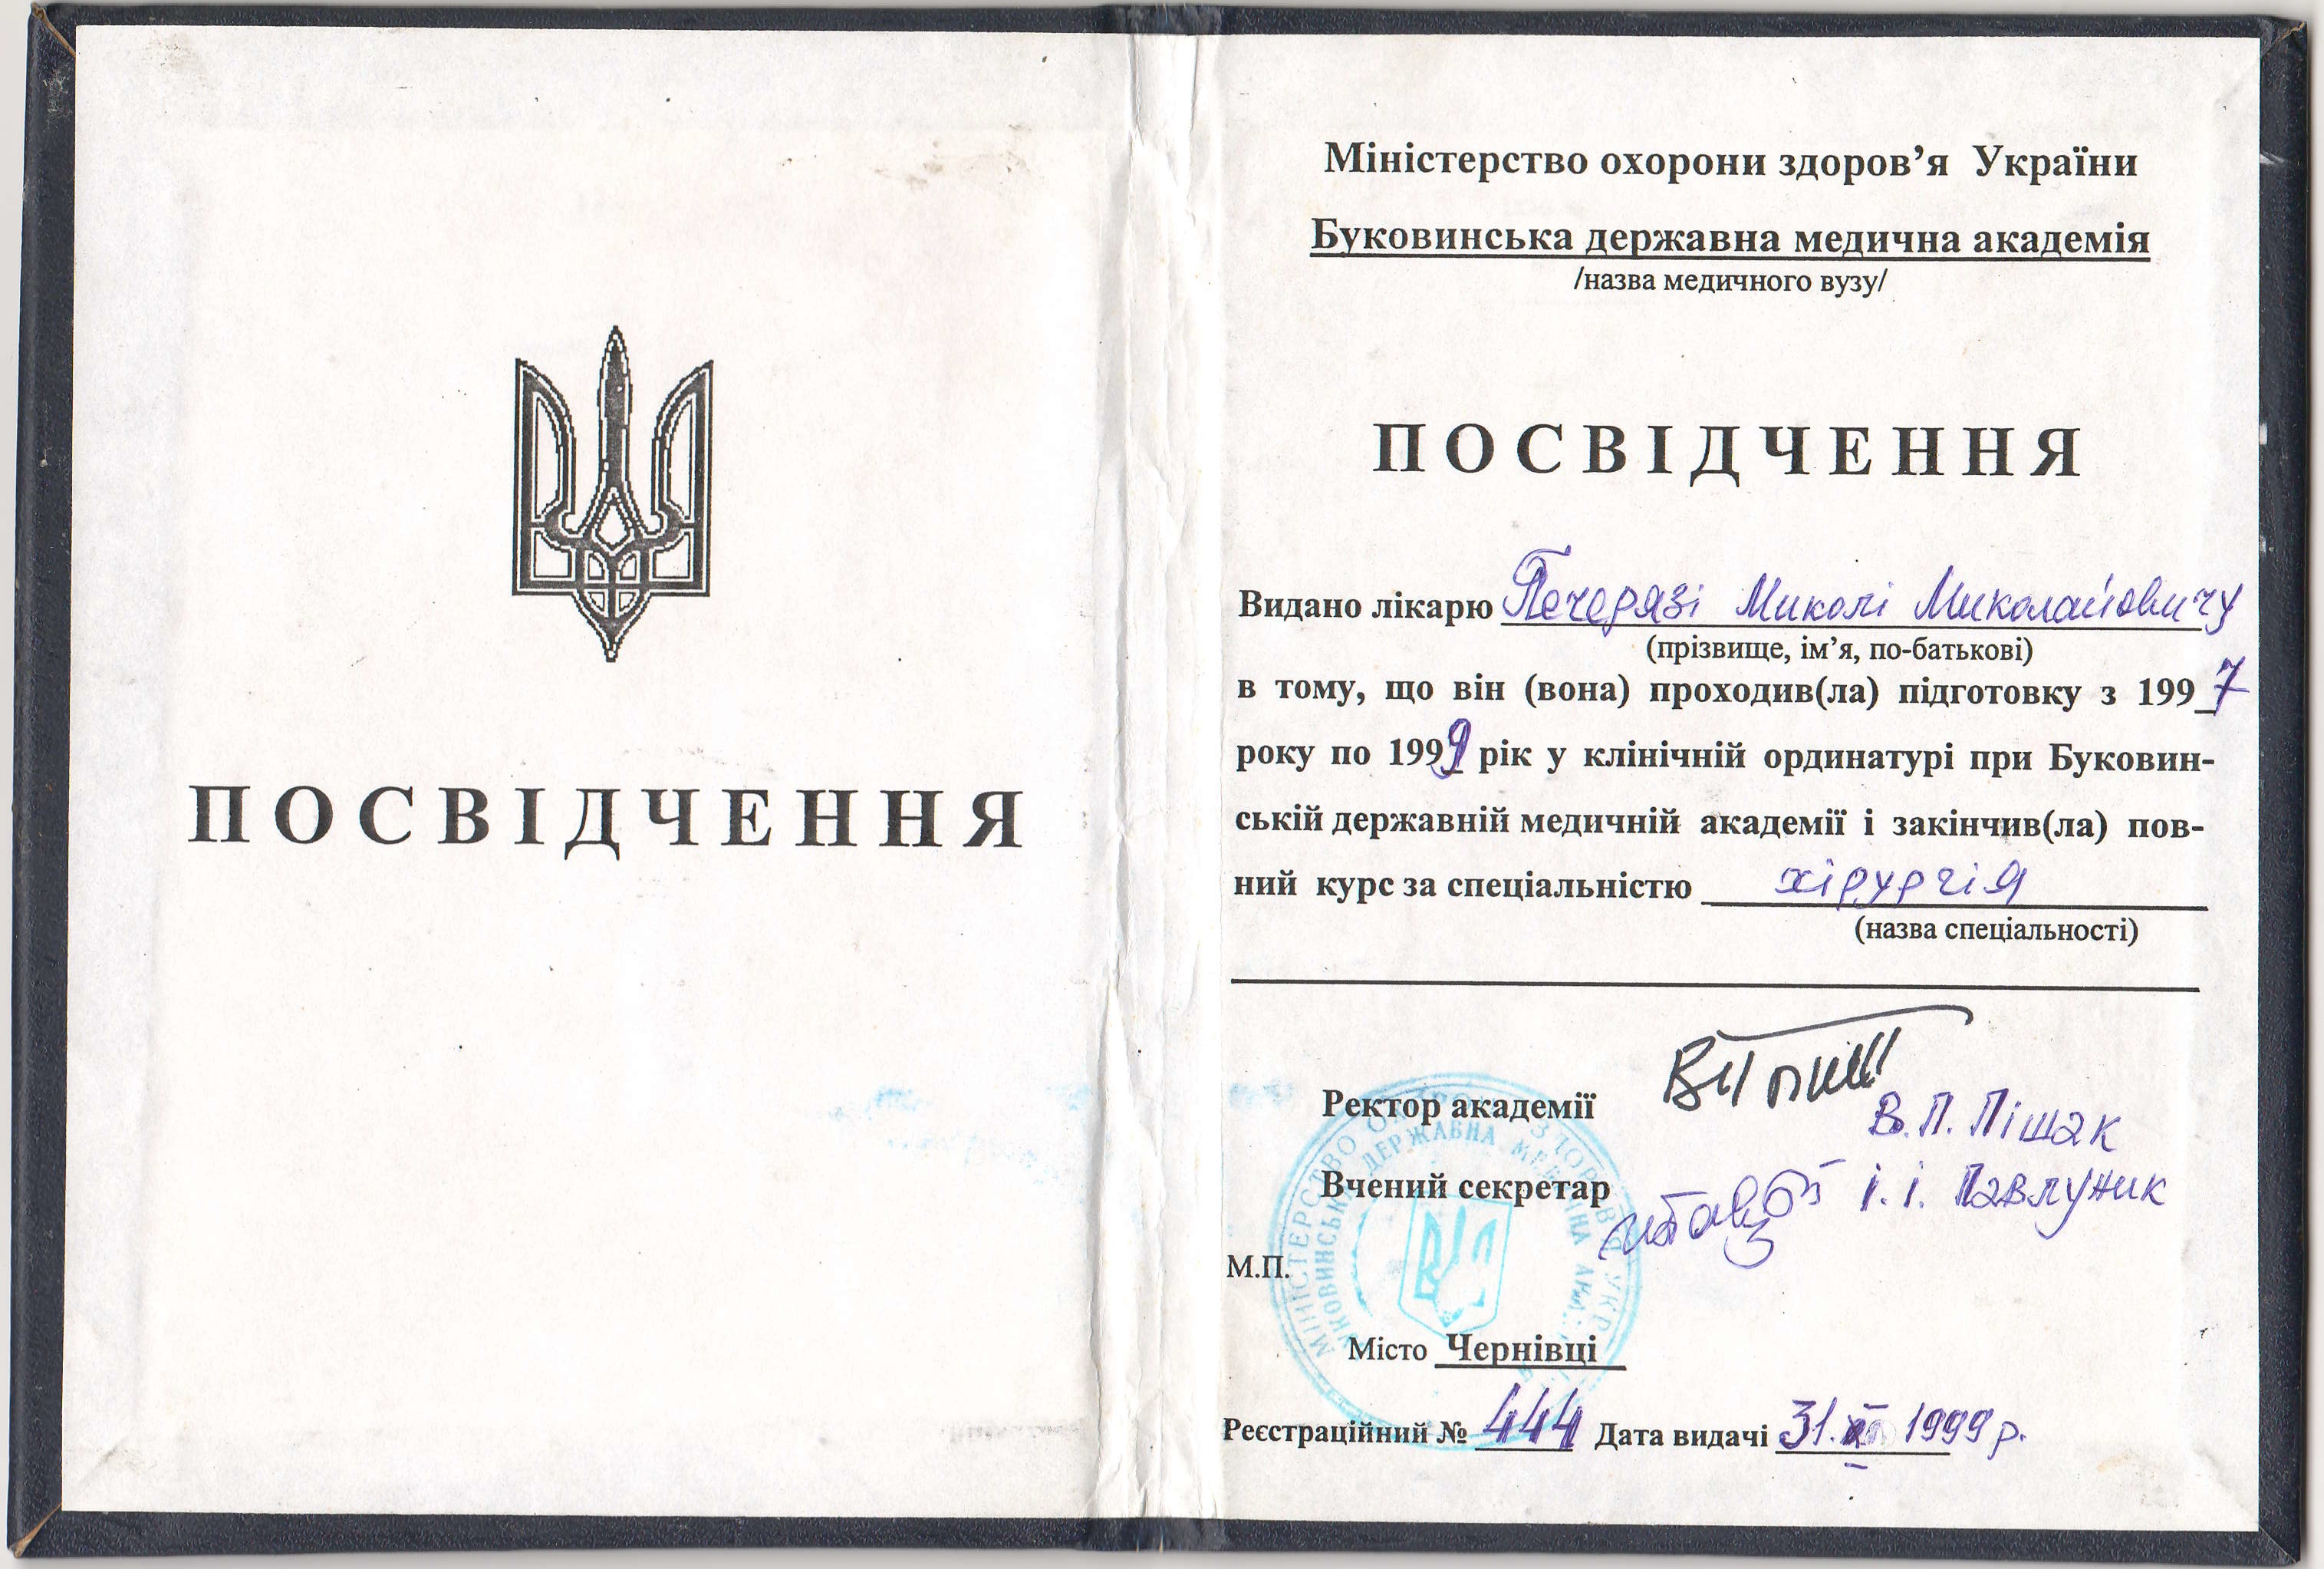 ПОСВІДЧЕННЯ
Міністерство охорони здоров’я України
Буковинська державна медична академія
/назва медичного вузу/
ПОСВІДЧЕННЯ
Видано лікарю Печерязі Миколі Миколайовичу
(прізвище, ім’я, по-батькові)
в тому, що він (вона) проходив(ла) підготовку з 1997
року по 1999 рік у клінічній ординатурі при Буковин-
ській державній медичній академії і закінчив(ла) пов-
ний курс за спеціальністю хірургія
(назва спеціальності)
Ректор академії В.П. Пішак
Вчений секретар І.І. Павлуник
М.П.
МІНІСТЕРСТВО ОХОРОНИ ЗДОРОВ’Я УКРАЇНИ
БУКОВИНСЬКА ДЕРЖАВНА МЕДИЧНА
Місто Чернівці
Реєстраційний № 444 Дата видачі 31. 1999 р.